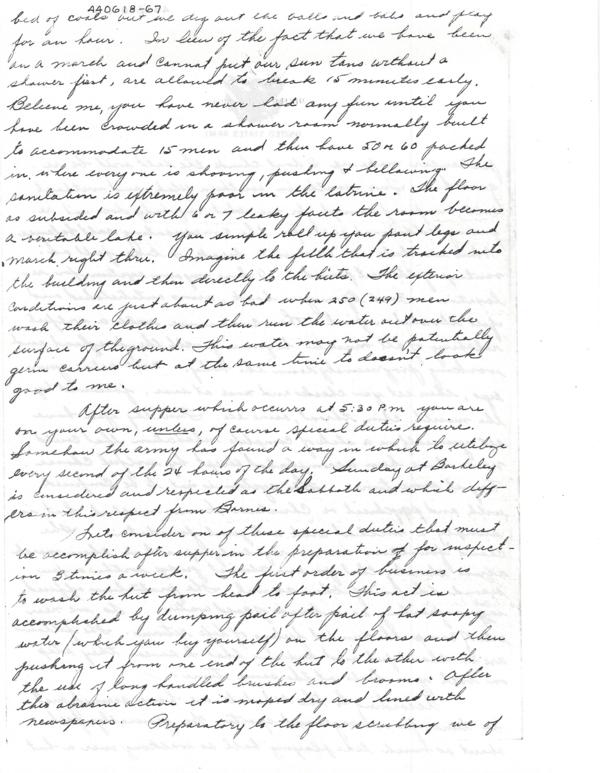 440618-67
bed of coals but we dig out the balls and bats and play
for an hour. In lieu of the fact that we have been
on a march and cannot put our sun tans without a
shower first, are allowed to break 15 minutes early.
Believe me, you have never had any fun until you
have been crowded in a shower room normally built
to accommodate 15 men and then have 50 or 60 packed
in, where everyone is shoving, pushing & bellowing. The
sanitation is extremely poor in the latrine. The floor
as subsided and with 6 or 7 leaky facets the room becomes
a veritable lake. You simple roll up you pant legs and
march right thru. Imagine the filth that is tracked into
the building and then directly to the huts. The exterior
conditions are just about as bad when 250 (249) men
wash their clothes and then run the water out over the
surface of the ground. This water may not be potentially
germ carriers but at the same time to doesn't look
good to me.
After supper which occurrs at 5:30 P.m you are
on your own, unless, of course special duties require.
Somehow the army has found a way in which to utilize
every second of the 24 hours of the day. Sunday at Barkeley
is considered and respected as the Sabbath and which diff-
ers in this respect from Barnes.
Lets consider on of these special duties that must
be accomplish after supper in the preparation of for inspect-
ion 3 times a week. The first order of business is
to wash the hut from head to foot. This act is
accomplished by dumping pail after pail of hot soapy
water (which you buy yourself) on the floors and then
pushing it from one end of the hut to the other with
the use of long handled brushes and brooms. After
this abrasive action it is moped dry and lined with
newspapers. Preparatory to the floor scrubbing we of